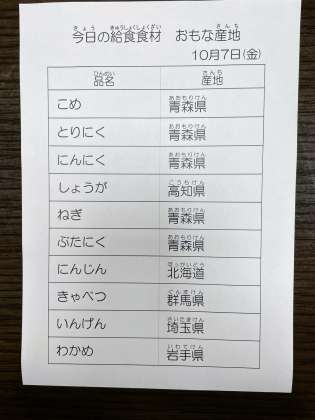 今日の給食食材 おもな産地
10月7日(金)
品名 産地
こめ 青森県
とりにく 青森県
にんにく 青森県
しょうが 高知県
ねぎ 青森県
ぶたにく 青森県
にんじん 北海道
きゃべつ 群馬県
いんげん 埼玉県
わかめ 岩手県